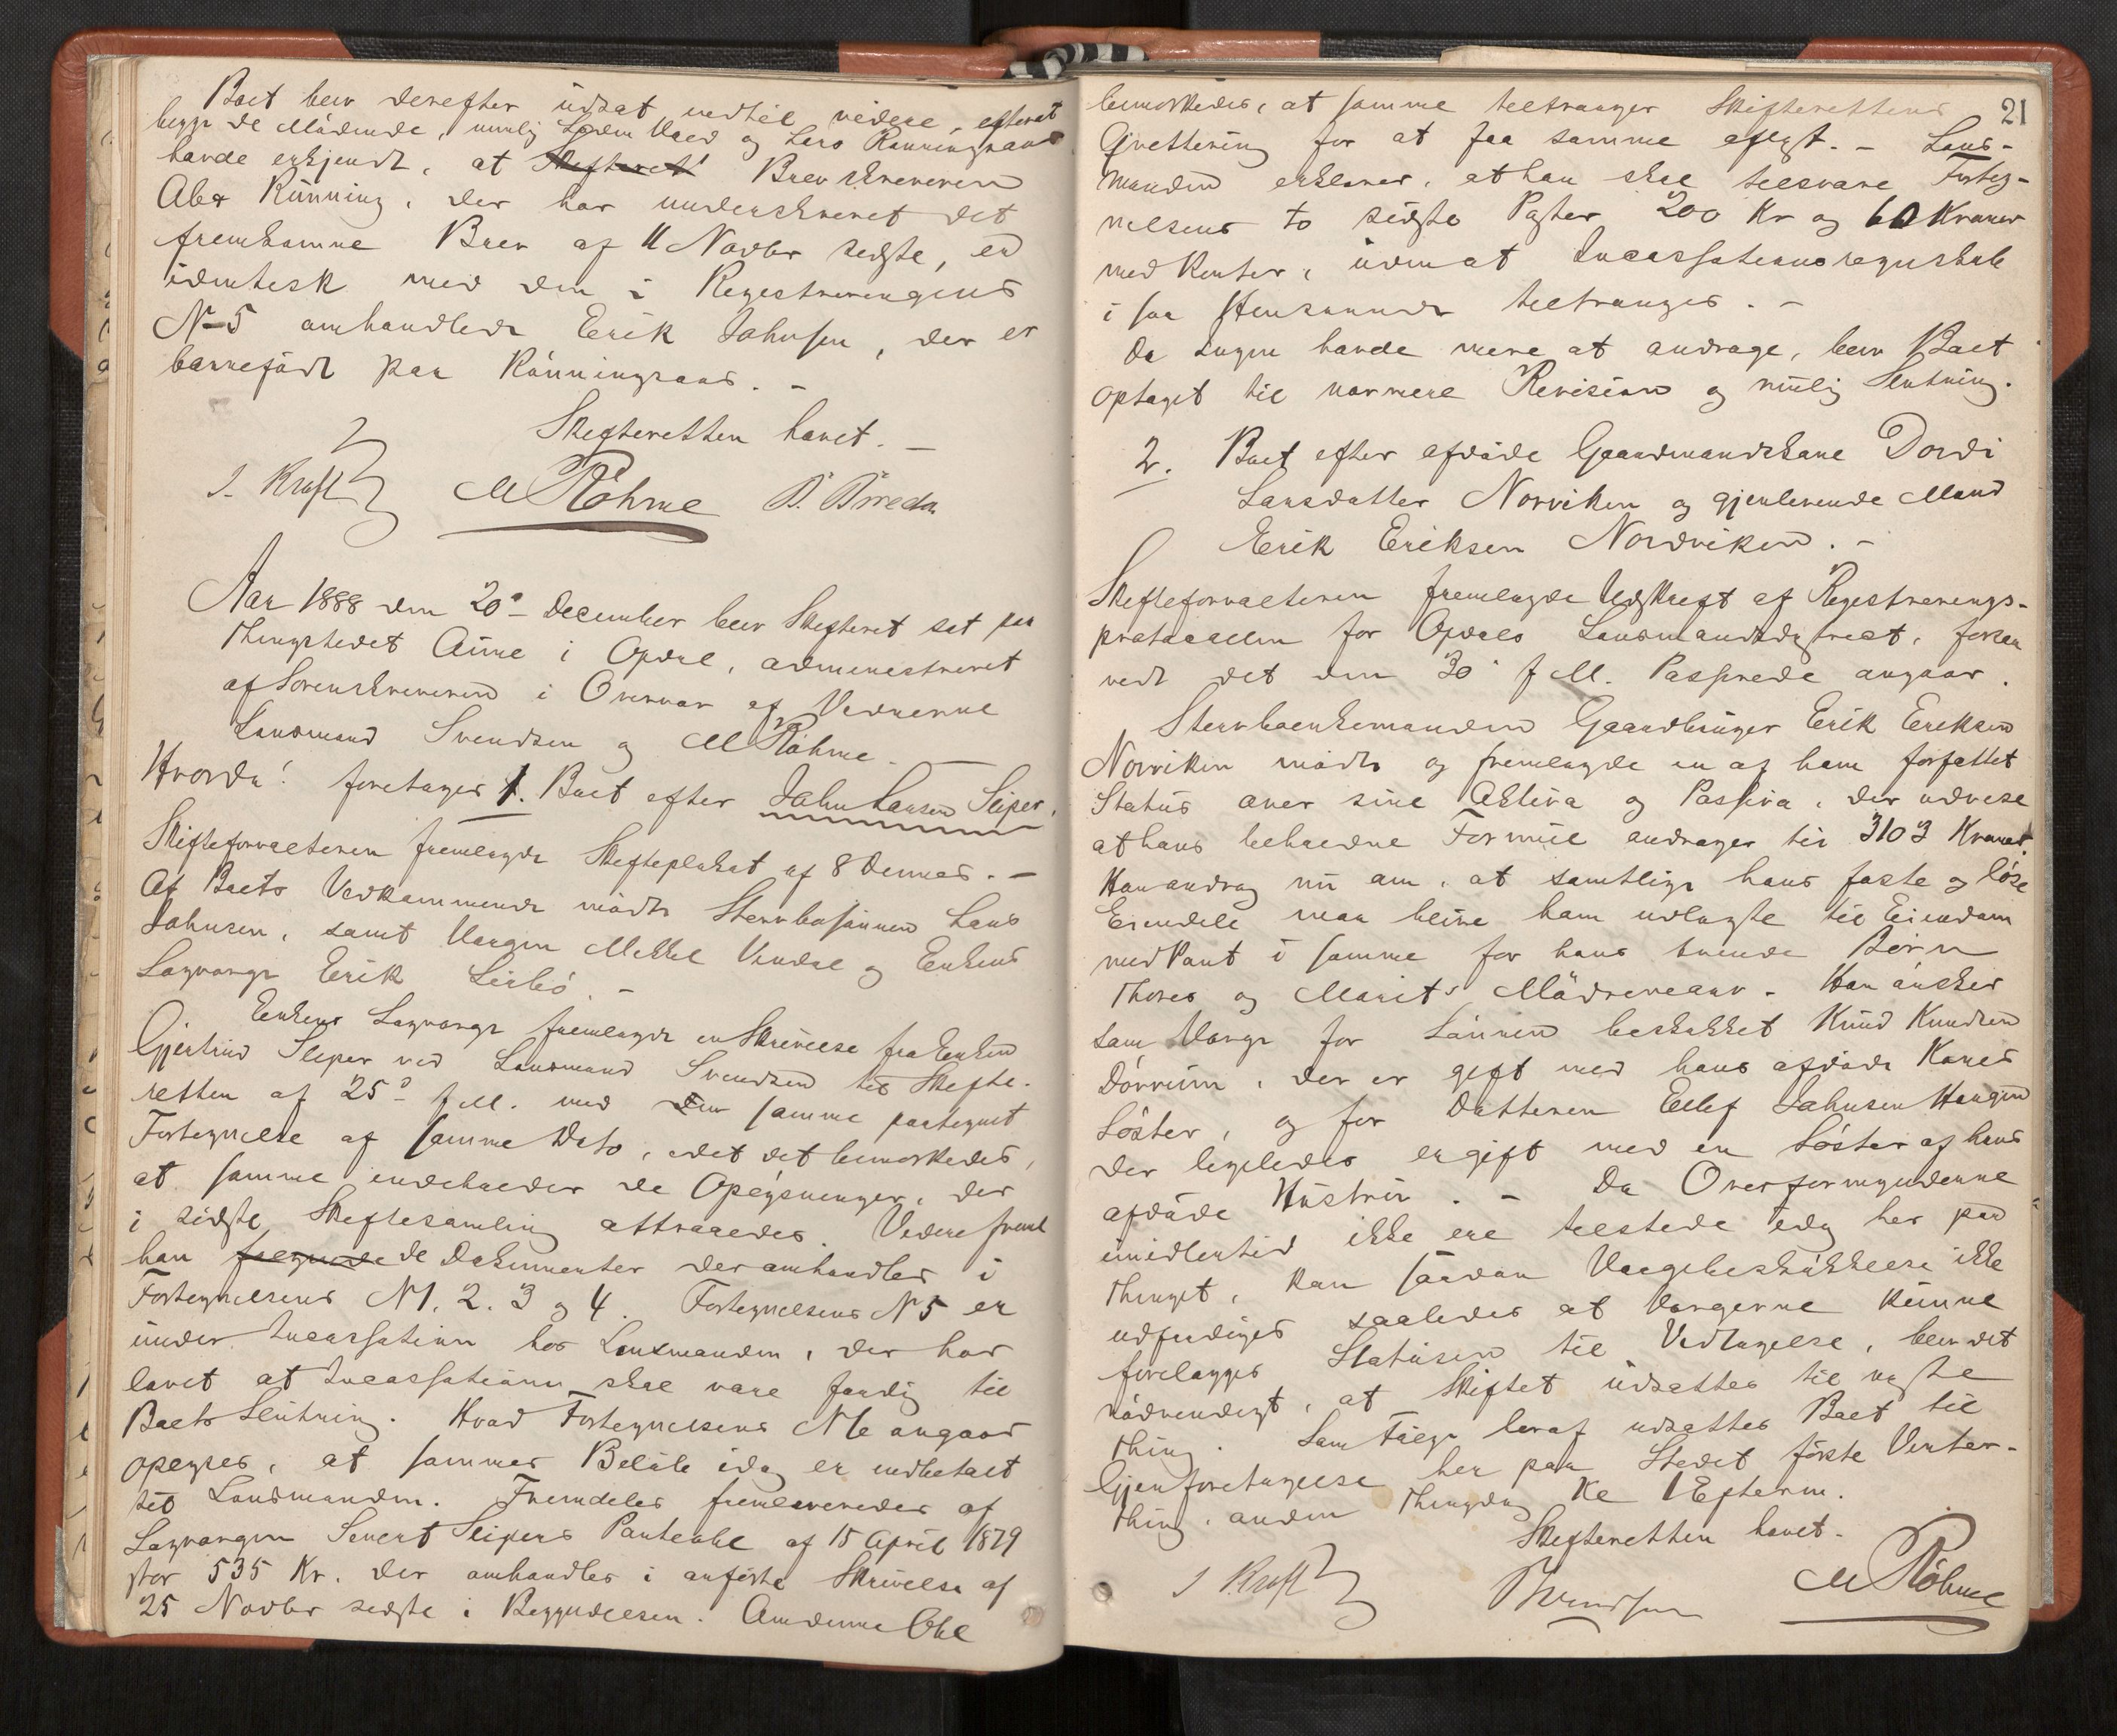 Boet blev derefter udsat indtil videre, efterat
begge de Mødende, nemlig Haed og Lars Rønningsaas
havde erkjendt, at Skifteret Brevskriveren
Abr Rønning, der har underskrevet det
fremkomne Brev af 11 Novbr sidste, er
identisk med den i Registreringens
N 5 omhandlede Erik Johnsen, der er
barnefødt paa Rønningsaas. –
Skifteretten hævet. –
I. Kraft M Røhme
Aar 1888 den 20de December blev Skifteret sat paa
Thingstedet Aune i Opdal, administreret
af Sorenskriveren i Overvær af Vidnerne
Lensmand Svendsen og M Røhme. –
Hvorda! foretages 1. Boet efter John Larsen Sliper.
Skifteforvalteren fremlagde Skifteplakat af 8 dennes. –
Af Boets Vedkommende mødte Stervbosønnen Lars
Johnsen, samt Værgen Mikkel Vindal og Enkens
Laugværge Erik Lisbø. –
Enkens Laugværge fremlagde en Skrivelse fra Enken
Gjertrud Sliper ved Lensmand Svendsen til Skifte-
retten af 25de f. M. med den samme paategnet
Fortegnelse af samme Dato, idet det bemærkedes,
at samme indeholder de Oplysninger, der
i sidste Skiftesamling attraaedes. Videre freml
han de Dokumenter der omhandles i
Fortegnelsens N 1. 2. 3 og 4. Fortegnelsens N 5 er
under Incassation hos Lensmanden, der har
lovet at Incassationen skal være færdig til
Boets Slutning. Hvad Fortegnelsens N 6 angaar
oplystes, at sammes Beløb idag er indbetalt
til Lensmanden. Fremdeles fremleveredes af
Laugværgen Sivert Slipers Panteobl af 15 April 1879
stor 535 Kr. der omhandles i anførte Skrivelse af
25 Novbr sidste i Begyndelsen. Om denne Obl
21
bemærkedes, at samme tiltrænger Skifterettens
Qvittering for at faa samme aflyst. – Lens-
manden erklærer, at han skal tilsvare Forteg-
nelsens to sidste Poster 200 Kr og 60 Kroner
med Renter, uden at Incassationsregnskab
i saa Henseende tiltrænges. –
Da Ingen havde mere at andrage, blev Boet
optaget til nærmere Revision og mulig Slutning.
2. Boet efter afdøde Gaardmandskone Dordi
Larsdatter Norviken og gjenlevende Mand
Erik Eriksen Nordviken. –
Skifteforvalteren fremlagde Udskrift af Registrerings-
protocollen for Opdals Lensmandsdistrict, forsaa
vidt det den 30 f M. Passerede angaar.
Stervboenkemanden Gaardbruger Erik Eriksen
Norviken mødte og fremlagde en af ham forfattet
Status over sine Aktiva og Passiva, der udvise
at hans beholdne Formue andrager til 3103 Kroner.
Han androg nu om, at samtlige hans faste og løse
Eiendele maa blive ham udlagte til Eiendom
mod Pant i samme for hans tvende Børn
Thores og Marits Mødrenearv. Han ønsker
som Værge for Sønnen beskikket Knud Knudsen
Dørrum, der er gift med hans afdøde Kones
Søster, og for Datteren Ellef Johnsen Haugen
der ligeledes er gift med en Søster af hans
afdøde Hustru. – Da Overformynderne
imidlertid ikke ere tilstede idag her paa
Thinget, kan saadan Værgebeskikkelse ikke
udfærdiges saaledes at Værgerne kunne
forelægges Statusen til Vedtagelse, blev det
nødvendigt, at Skiftet udsattes til næste
Thing. Som Følge heraf udsattes Boet til
Gjenforetagelse her paa Stedet første Vinter-
thing, anden Thingdag Kl 1 Efterm.
Skifteretten hævet.
I Kraft Svendsen M Røhme